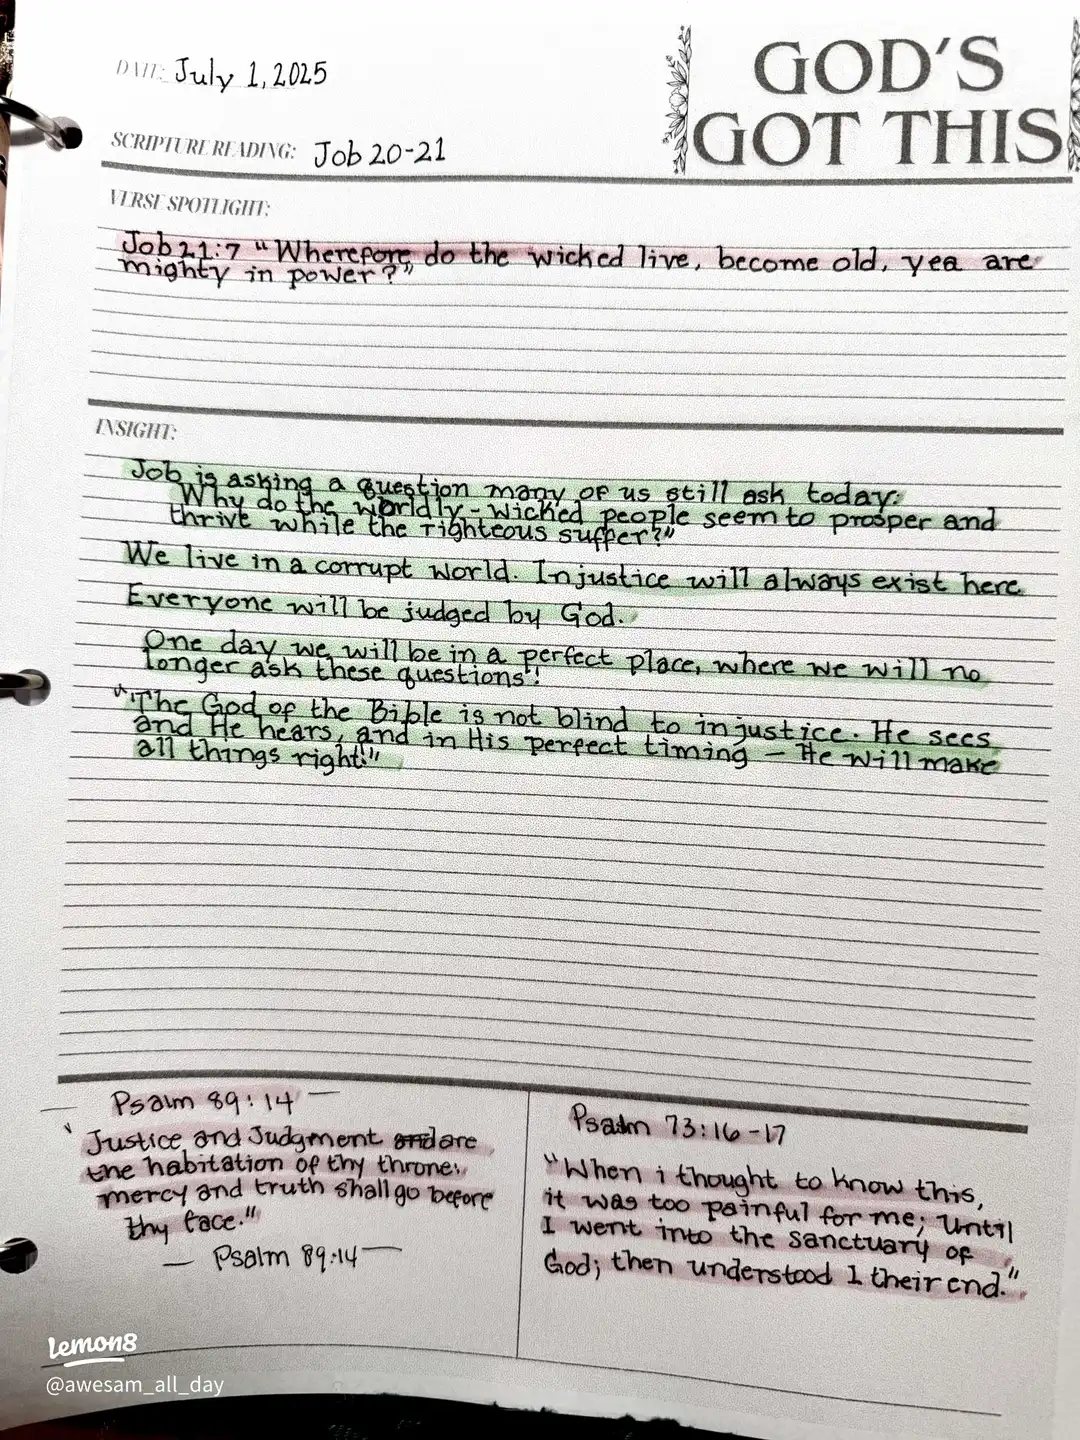 DATE: July 1, 2025
GOD'S
GOT THIS
SCRIPTURE READING: Job 20-21
VERSE SPOTLIGHT:
Job 21:7 "Wherefore do the wicked live, become old, yea are
mighty in power?"
INSIGHT:
Job is asking a question many of us still ask today:
Why do the worldly - wicked people seem to prosper and
thrive while the righteous suffer?"
We live in a corrupt world. Injustice will always exist here
Everyone will be judged by God.
One day we will be in a perfect place, where we will no
longer ask these questions!
"The God of the Bible is not blind to injustice. He sees
and He hears, and in His perfect timing - He will make
all things right!"
Psalm 89:14
"Justice and Judgment and are
the habitation of thy throne:
mercy and truth shall go before
thy face."
— Psalm 89:14 —
Psalm 73:16-17
"When i thought to know this,
it was too painful for me; Until
I went into the sanctuary of
God; then understood I their end."
Lemon8
@awesam_all_day